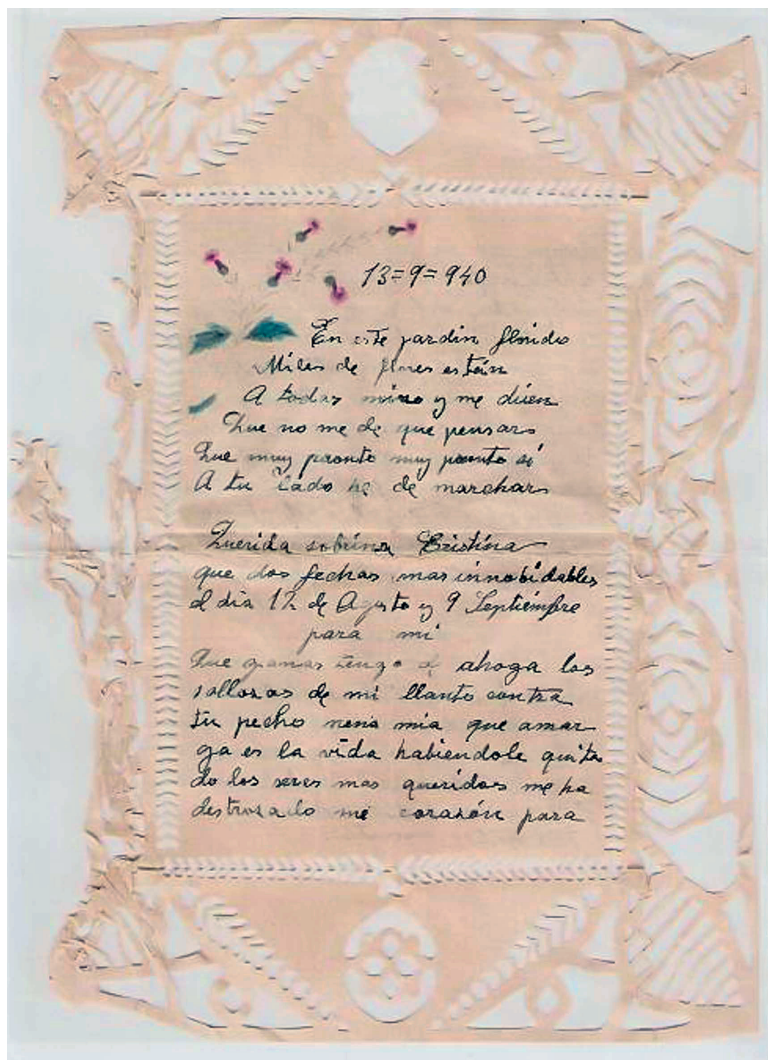 13=9=940
En este jardin florido
Miles de flores están
A todas miro y me dicen
Que no me de que pensar
Que muy pronto muy pronto si
A tu lado he de marchar
Querida sobrina Cristina
que dos fechas mas innobidables
el dia 12 de Agosto y 9 Septiembre
para mi
Que ganas tengo d ahoga los
sollosos de mi llanto contra
tu pecho nena mia que amar
ga es la vida habiendole quita
do los seres mas queridos me ha
destrosado mi corazón para